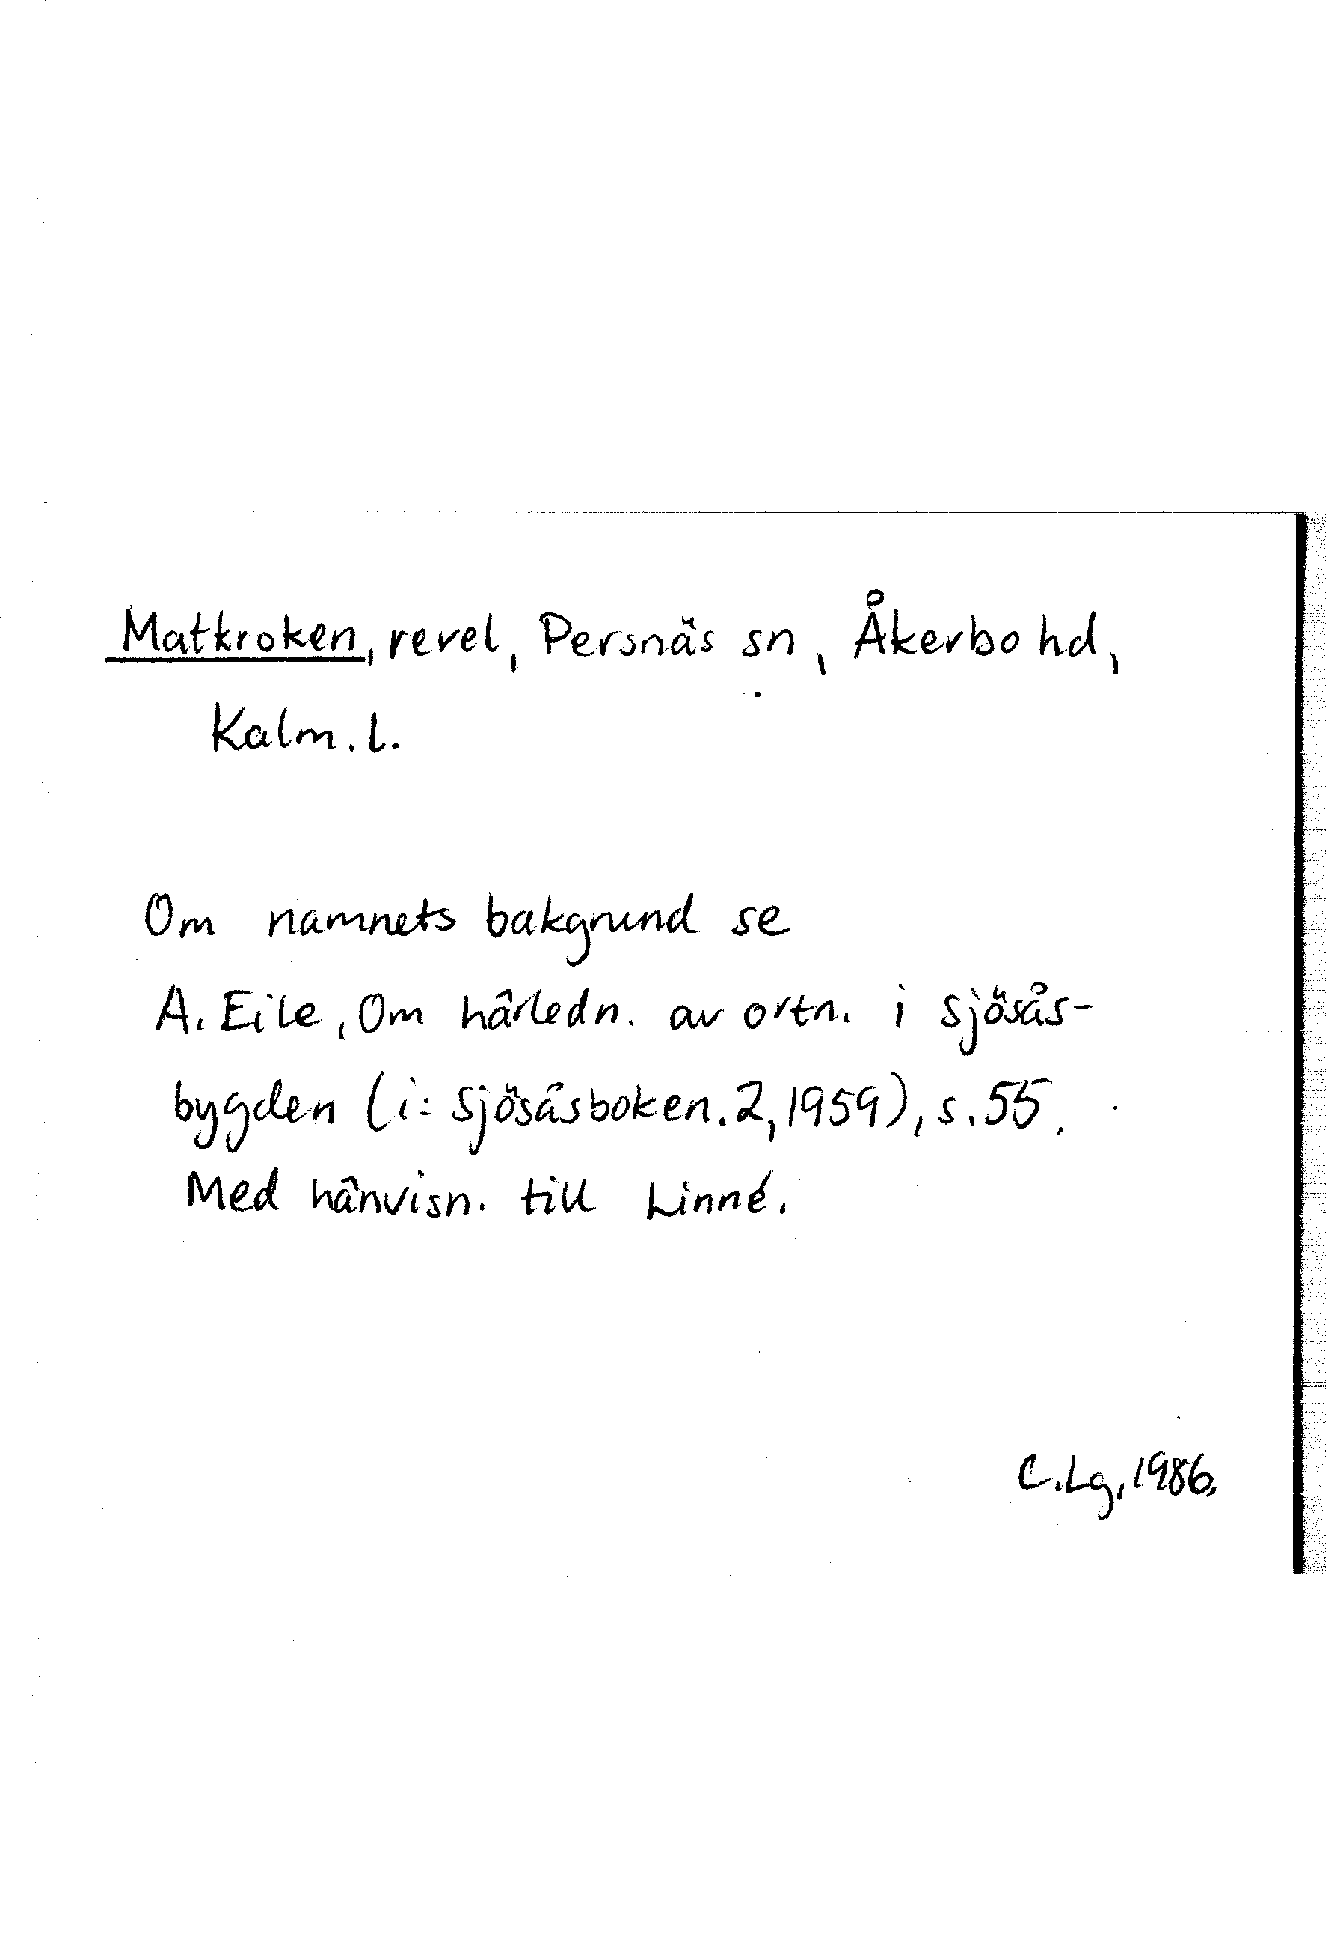 Matkroken, revel, Persnäs sn, Åkerbo hd,
Kalm. l.
Om namnets bakgrund se
A. Eile, Om härledn. av ortn. i Sjösås-
bygden (i: Sjösåsboken. 2, 1959), s. 55.
Med hänvisn. till Linné.
C. Lg, 1986.